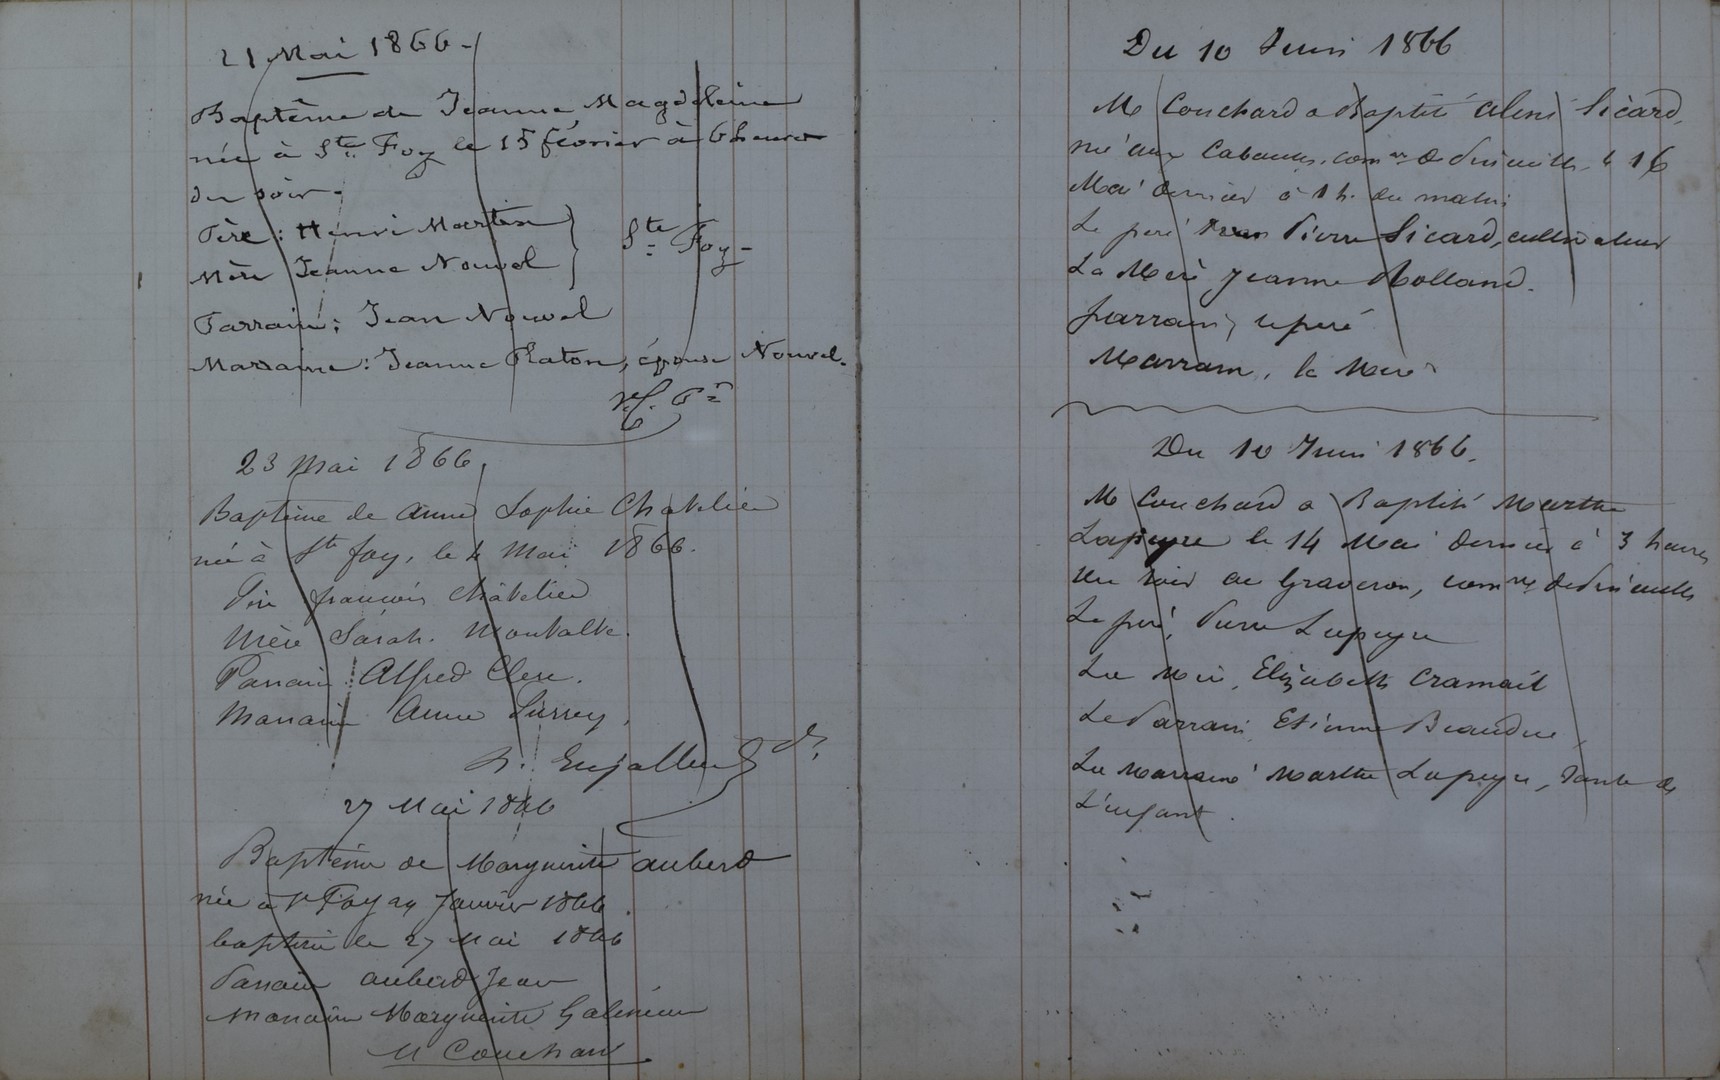 21 Mai 1866.
Baptême de Jeanne Magdeleine
née à Ste Foy le 15 février à 6 heures
du soir.
Père : Henri Martin
Mère Jeanne Nouvel
Ste Foy
Parrain : Jean Nouvel
Marraine : Jeanne Platon, épouse Nouvel.
23 Mai 1866,
Baptême de Anne Sophie Chatelier
née à Ste foy, le 4 Mai 1866.
Père françois Châtelier
Mère Sarah.
Parrain Alfred Clerc.
Marraine Anne
27 Mai 1866
Baptême de Marguerite auberd
née à Ste Foy 24 Janvier 1866.
baptisée le 27 Mai 1866
Parrain auberd Jean
Marraine Marguerite
M Couchard
Du 10 Juin 1866
Mr Couchard a Baptisé Sicard,
né aux le 16
Mai dernier à 1 h. du matin
Le père Pierre Sicard, cultivateur
La Mère Jeanne Rolland.
parrain, le père
Marraine, la Mère
Du 10 Juin 1866.
Mr Couchard a Baptisé Marthe
Lapeyre le 14 Mai dernier à 3 heures
du soir au Graveron,
Le père, Pierre Lapeyre
La Mère, Elizabeth Cramail
Le Parrain Etienne
La Marraine Marthe Lapeyre, tante de
L'enfant.